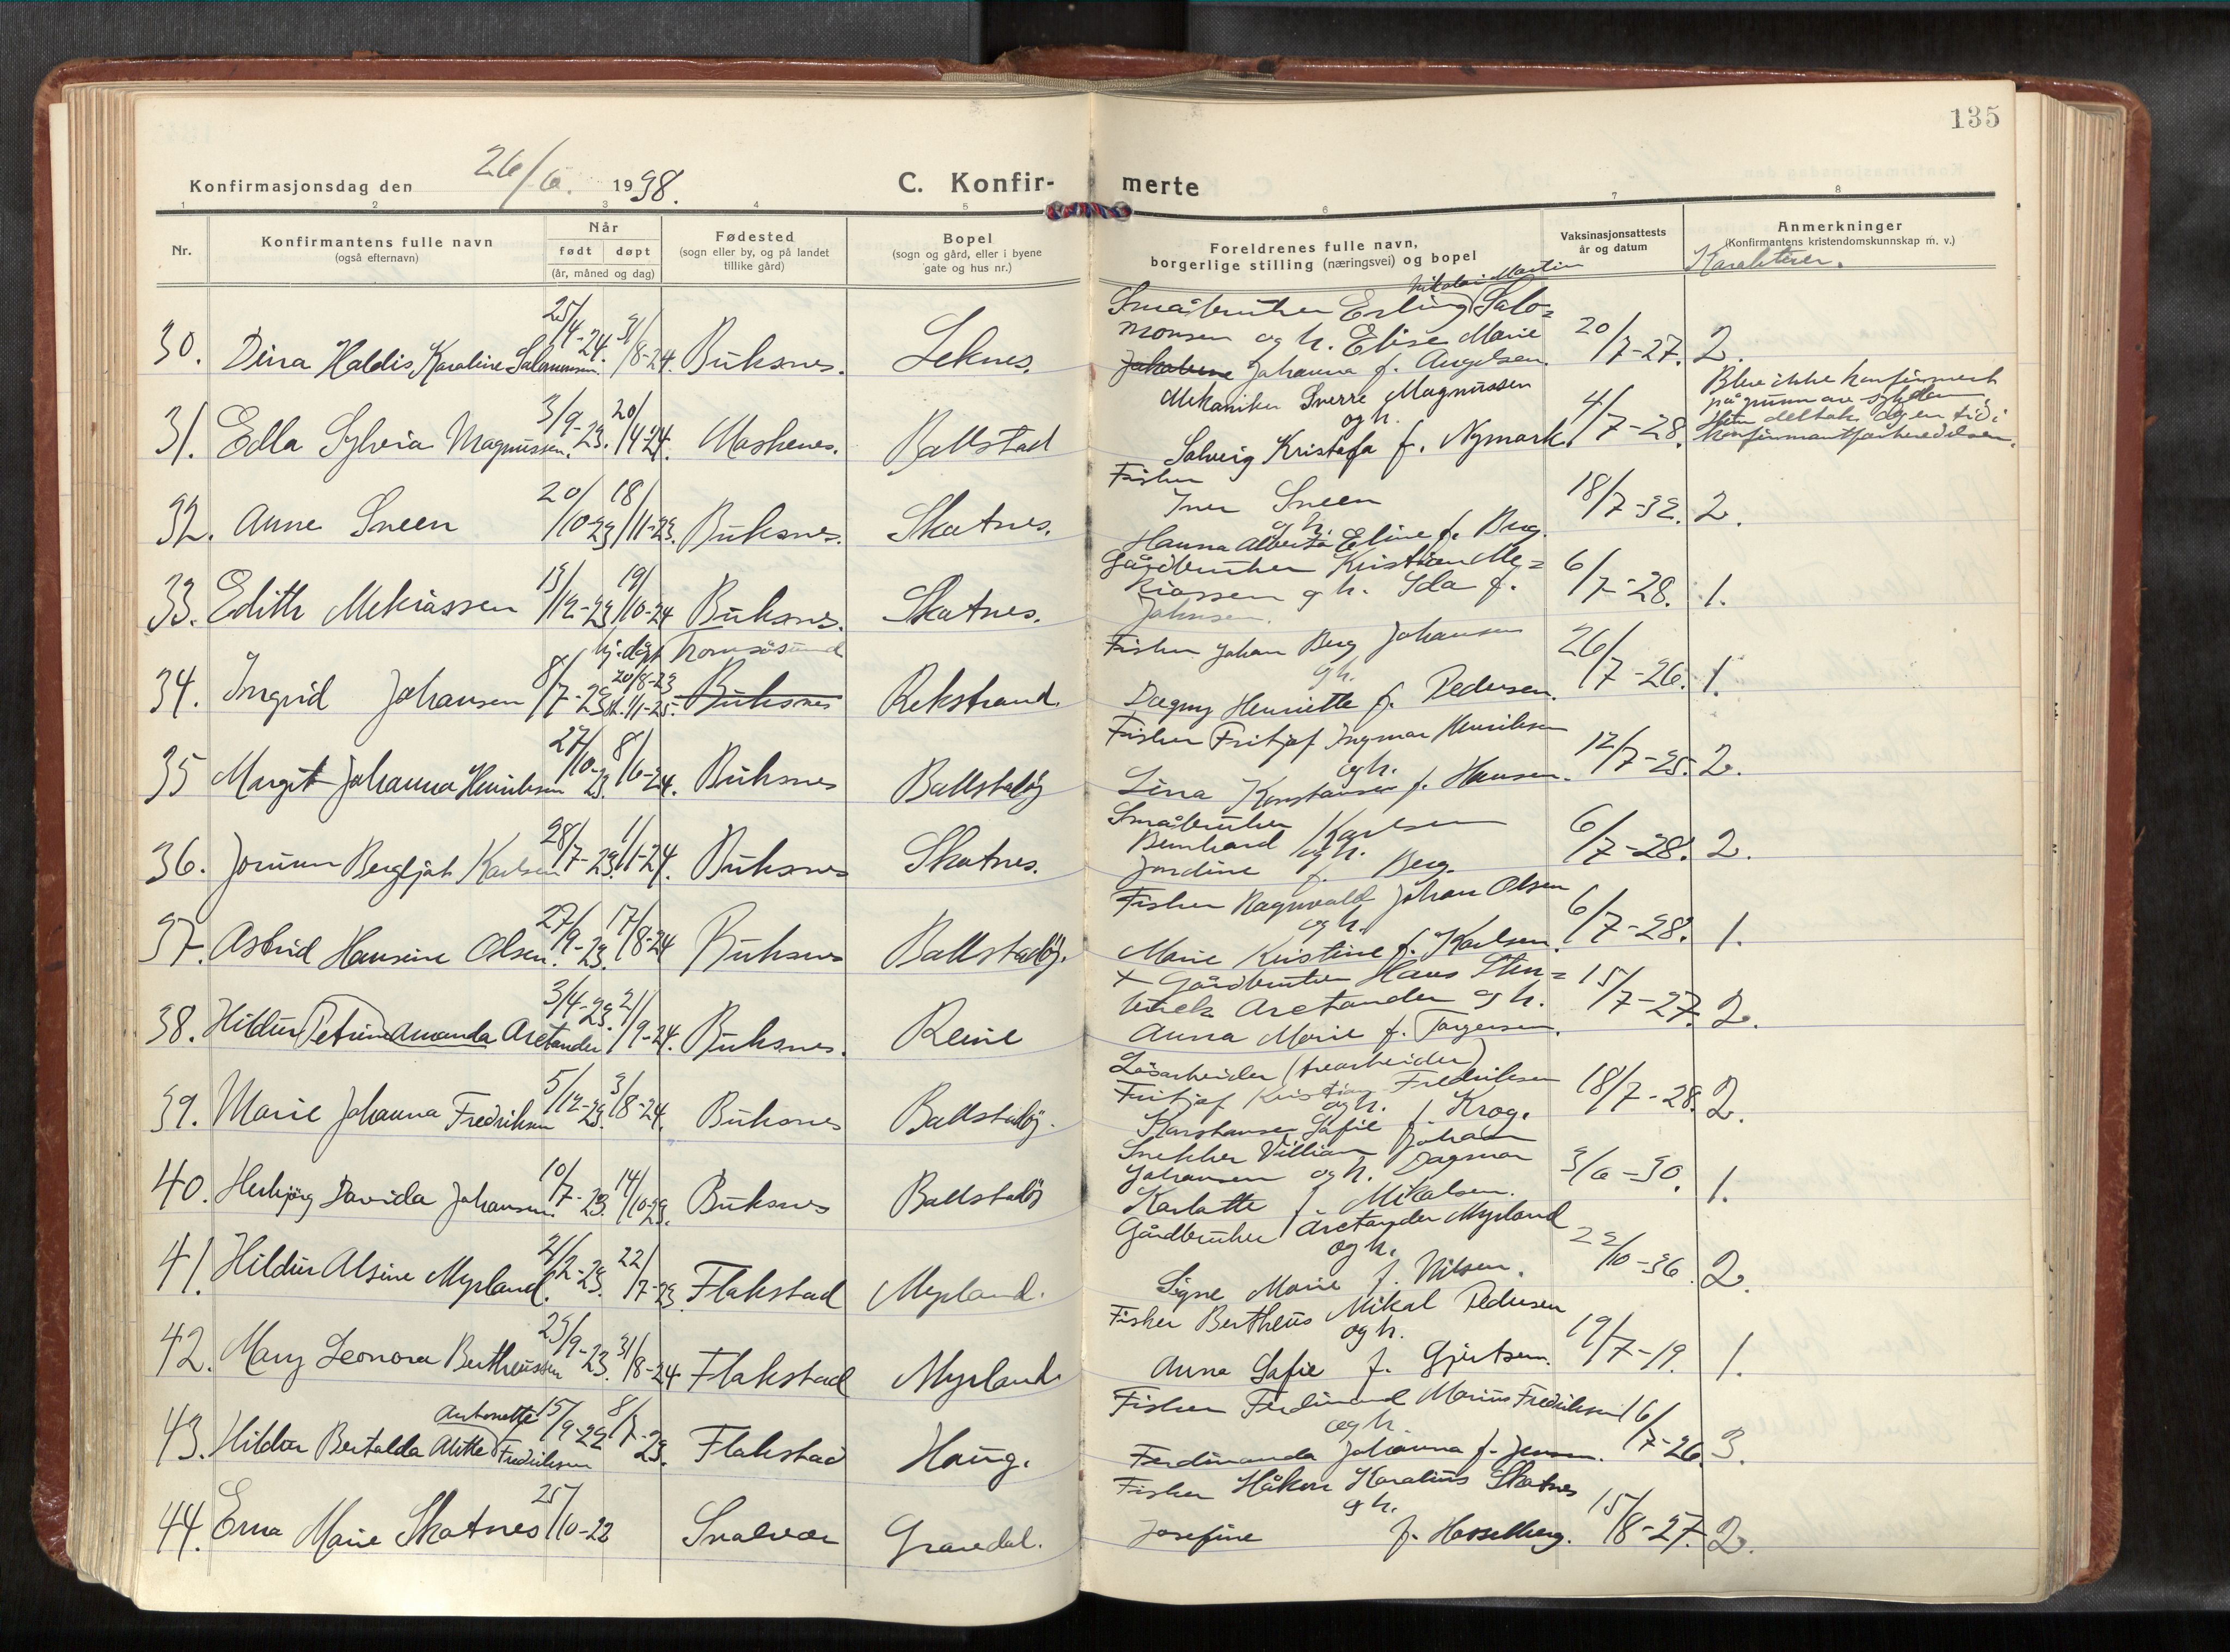 135
Konfirmasjonsdag den 26/6. 1938.
C. Konfir- merte
1 2 3 4 5 6 7 8
Nr.
Konfirmantens fulle navn
(også efternavn)
Når
født døpt
(år, måned og dag)
Fødested
(sogn eller by, og på landet
tillike gård)
Bopel
(sogn og gård, eller i byene
gate og hus nr.)
Foreldrenes fulle navn,
borgerlige stilling (næringsvei) og bopel
Vaksinasjonsattests
år og datum
Anmerkninger
(Konfirmantens kristendomskunnskap m. v.)
Karakterer.
30. Dina Haldis Karoline Salomonsen. 25/4-24. 31/8-24. Buksnes. Leknes.
Nikolai Martin
Småbruker Erling Salo=
monsen og h. Elise Marie
Jakobine Johanna f. Angelsen. 20/7-27. 2.
31. Edla Sylvia Magnussen. 3/9-23. 20/4-24. Moskenes. Ballstad
Mekaniker Sverre Magnussen
og h.
Solveig Kristofa f. Nymark. 4/7-28.
Blev ikke konfirmert
på grunn av sykdom
Hun deltok dog en tid i
konfirmantforberedelsen.
32. Anne Sneen 20/10-23 18/11-23. Buksnes. Skotnes.
Fisker
Iver Sneen
og h.
Hanna Alberta Eline f. Berg. 18/7-32. 2.
33. Edith Mekiassen 13/12-23 19/10-24 Buksnes. Skotnes.
Gårdbruker Kristian Me=
kiassen og h. Ida f.
Johnsen. 6/7-28. 1.
34. Ingrid Johansen 8/7-23 hj.døpt 20/8-23 st. 1/1-25. Buksnes Rekstrand.
Fisker Johan Berg Johansen
og h.
Dagny Henriette f. Pedersen. 26/7-26. 1.
35 Margit Johanna Henriksen 27/10-23. 8/6-24. Buksnes Ballstadøy
Fisker Fritjof Ingmar Henriksen
og h.
Lina Konstanse f. Hansen. 12/7-25. 2.
36. Jorunn Bergljot Karlsen 28/7-23. 1/1-24. Buksnes Skotnes.
Småbruker
Bernhard Karlsen
og h.
Jordine f. Berg. 6/7-28. 2.
37. Astrid Hansine Olsen. 27/9-23. 17/8-24 Buksnes Ballstadøy.
Fisker Ragnvald Johan Olsen
og h.
Marie Kristine f. Karlsen. 6/7-28. 1.
38. Hildur (Petrine) Amanda Arctander 3/4-23. 21/9-24. Buksnes. Reine
+ Gårdbruker Hans Sten=
buch Arctander og h.
Anna Marie f. Torgersen. 15/7-27. 2.
39. Marie Johanna Fredriksen 5/12-23. 3/8-24. Buksnes Ballstadøy.
Løsarbeider (trearbeider)
Fritjof Kristian Fredriksen
og h.
Konstanse Sofie f. Krog. 18/7-28. 2.
40. Herbjørg Davida Johansen. 10/7-23. 14/10-23. Buksnes Ballstadøy
Snekker Villiam Johan
Johansen og h. Dagmar
Karlotte f. Mikalsen. 3/6-30. 1.
41. Hildur Alsine Myrland. 21/2-23. 22/7-23 Flakstad Myrland.
Gårdbruker Arctander Myrland
og h.
Signe Marie f. Nilsen. 22/10-36. 2.
42. Mary Leonora Bertheussen 23/9-23. 31/8-24 Flakstad Myrland.
Fisker Bertheus Mikal Pedersen
og h.
Anna Sofie f. Gjertsen. 19/7-19. 1.
Antonette
43. Hildur Bertalda Alitte Fredriksen 15/9-22 8/7-23. Flakstad Haug.
Fisker Ferdinand Marius Fredriksen
og h.
Ferdinanda Johanna f. Jensen. 16/7-26. 3.
44. Erna Marie Skotnes 25/10-22 Svolvær Gravdal.
Fisker Håkon Karelius Skotnes
og h.
Josefine f. Hasselberg. 15/8-27. 2.